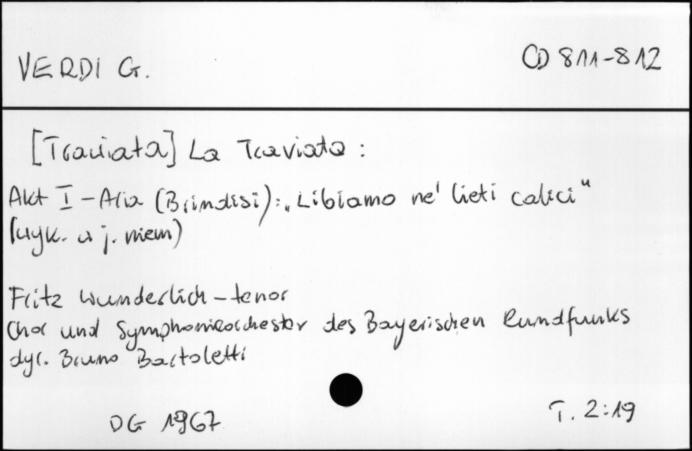 VERDI G.
CD 811-812
[Traviata] La Traviata :
Akt I - Aria (Brindisi): „Libiamo ne' lieti calici"
(wyk. w j. niem)
Fritz Wunderlich - tenor
Chor und Symphonieorchester des Bayerischen Rundfunks
dyr. Bruno Bartoletti
DG 1967
T. 2:19